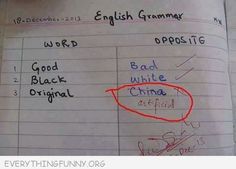 18-December-2013 English Grammar
WORD OPPOSITE
1 Good Bad
2 Black White
3 Original China
artificial
EVERYTHINGFUNNY.ORG